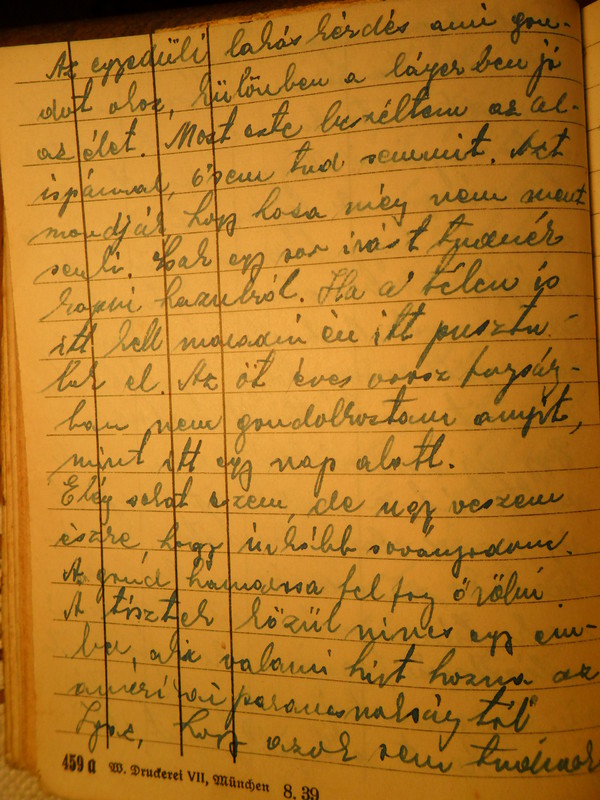 Az egyedüli lakás kérdés ami gon-
dot okoz, különben a lágerben jó
az élet. Most este beszéltem az al-
ispánnal, ő sem tud semmit. Azt
mondják, hogy haza még nem ment
senki. Csak egy sor írást tudnék
kapni hazulról. Ha a télen is
itt kell maradni én itt pusztu-
lok el. Az öt éves orosz fogság-
ban nem gondolkoztam annyit,
mint itt egy nap alatt.
Elég sokat eszem, de úgy veszem
észre, hogy inkább soványodom.
A gond hamarosan fel fog őrölni.
A tisztek közül nincs egy em-
ber, aki valami hírt hozna az
amerikai parancsnokságtól
Igaz, hogy azok sem tudnak
459 a W. Druckerei VII, München 8. 39